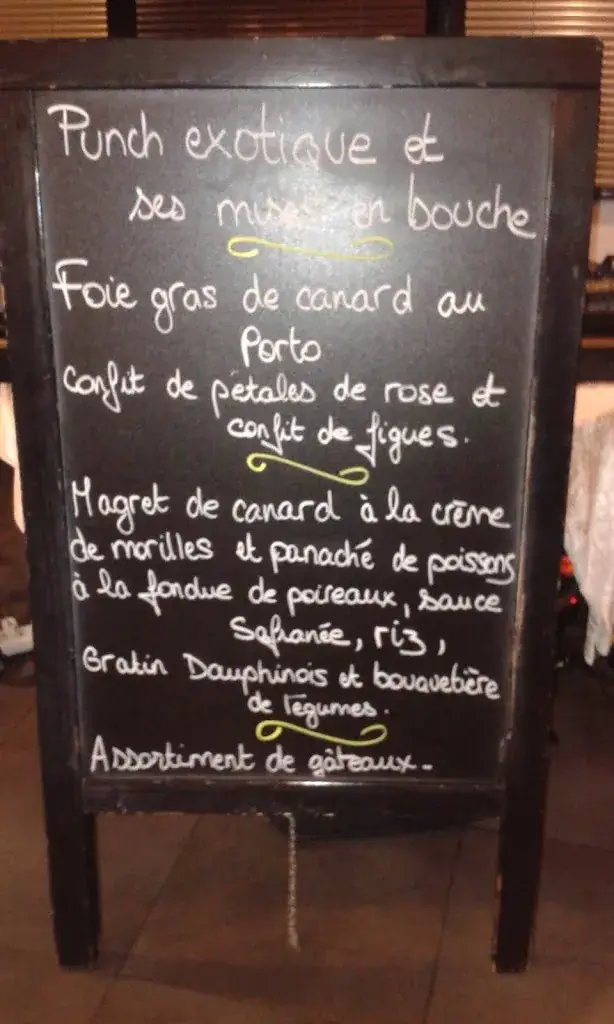 Punch exotique et
ses mises en bouche
Foie gras de canard au
Porto
Confit de pétales de rose et
confit de figues.
Magret de canard à la crème
de morilles et panaché de poissons
à la fondue de poireaux, sauce
Safranée, riz,
Gratin Dauphinois et bouquetière
de légumes.
Assortiment de gâteaux.